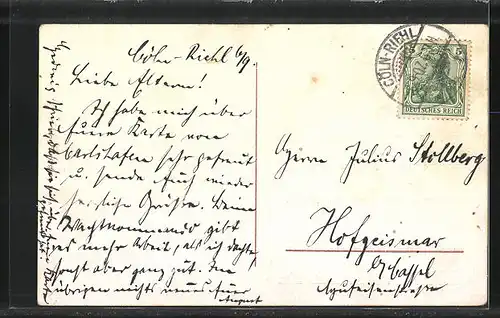 Cöln-Riehl 6/9.
Liebe Eltern!
Ich habe mich über
Eure Karte von
Carlshafen sehr gefreut
u. sende Euch wieder
herzliche Grüße. Beim
Wachtkommando gibt
es mehr Arbeit, als ich dachte,
sonst aber ganz gut. Im
übrigen nichts neues. Euer
August
CÖLN-RIEHL
5 5
DEUTSCHES REICH
Herrn Julius Stollberg
Hofgeismar
b/Cassel